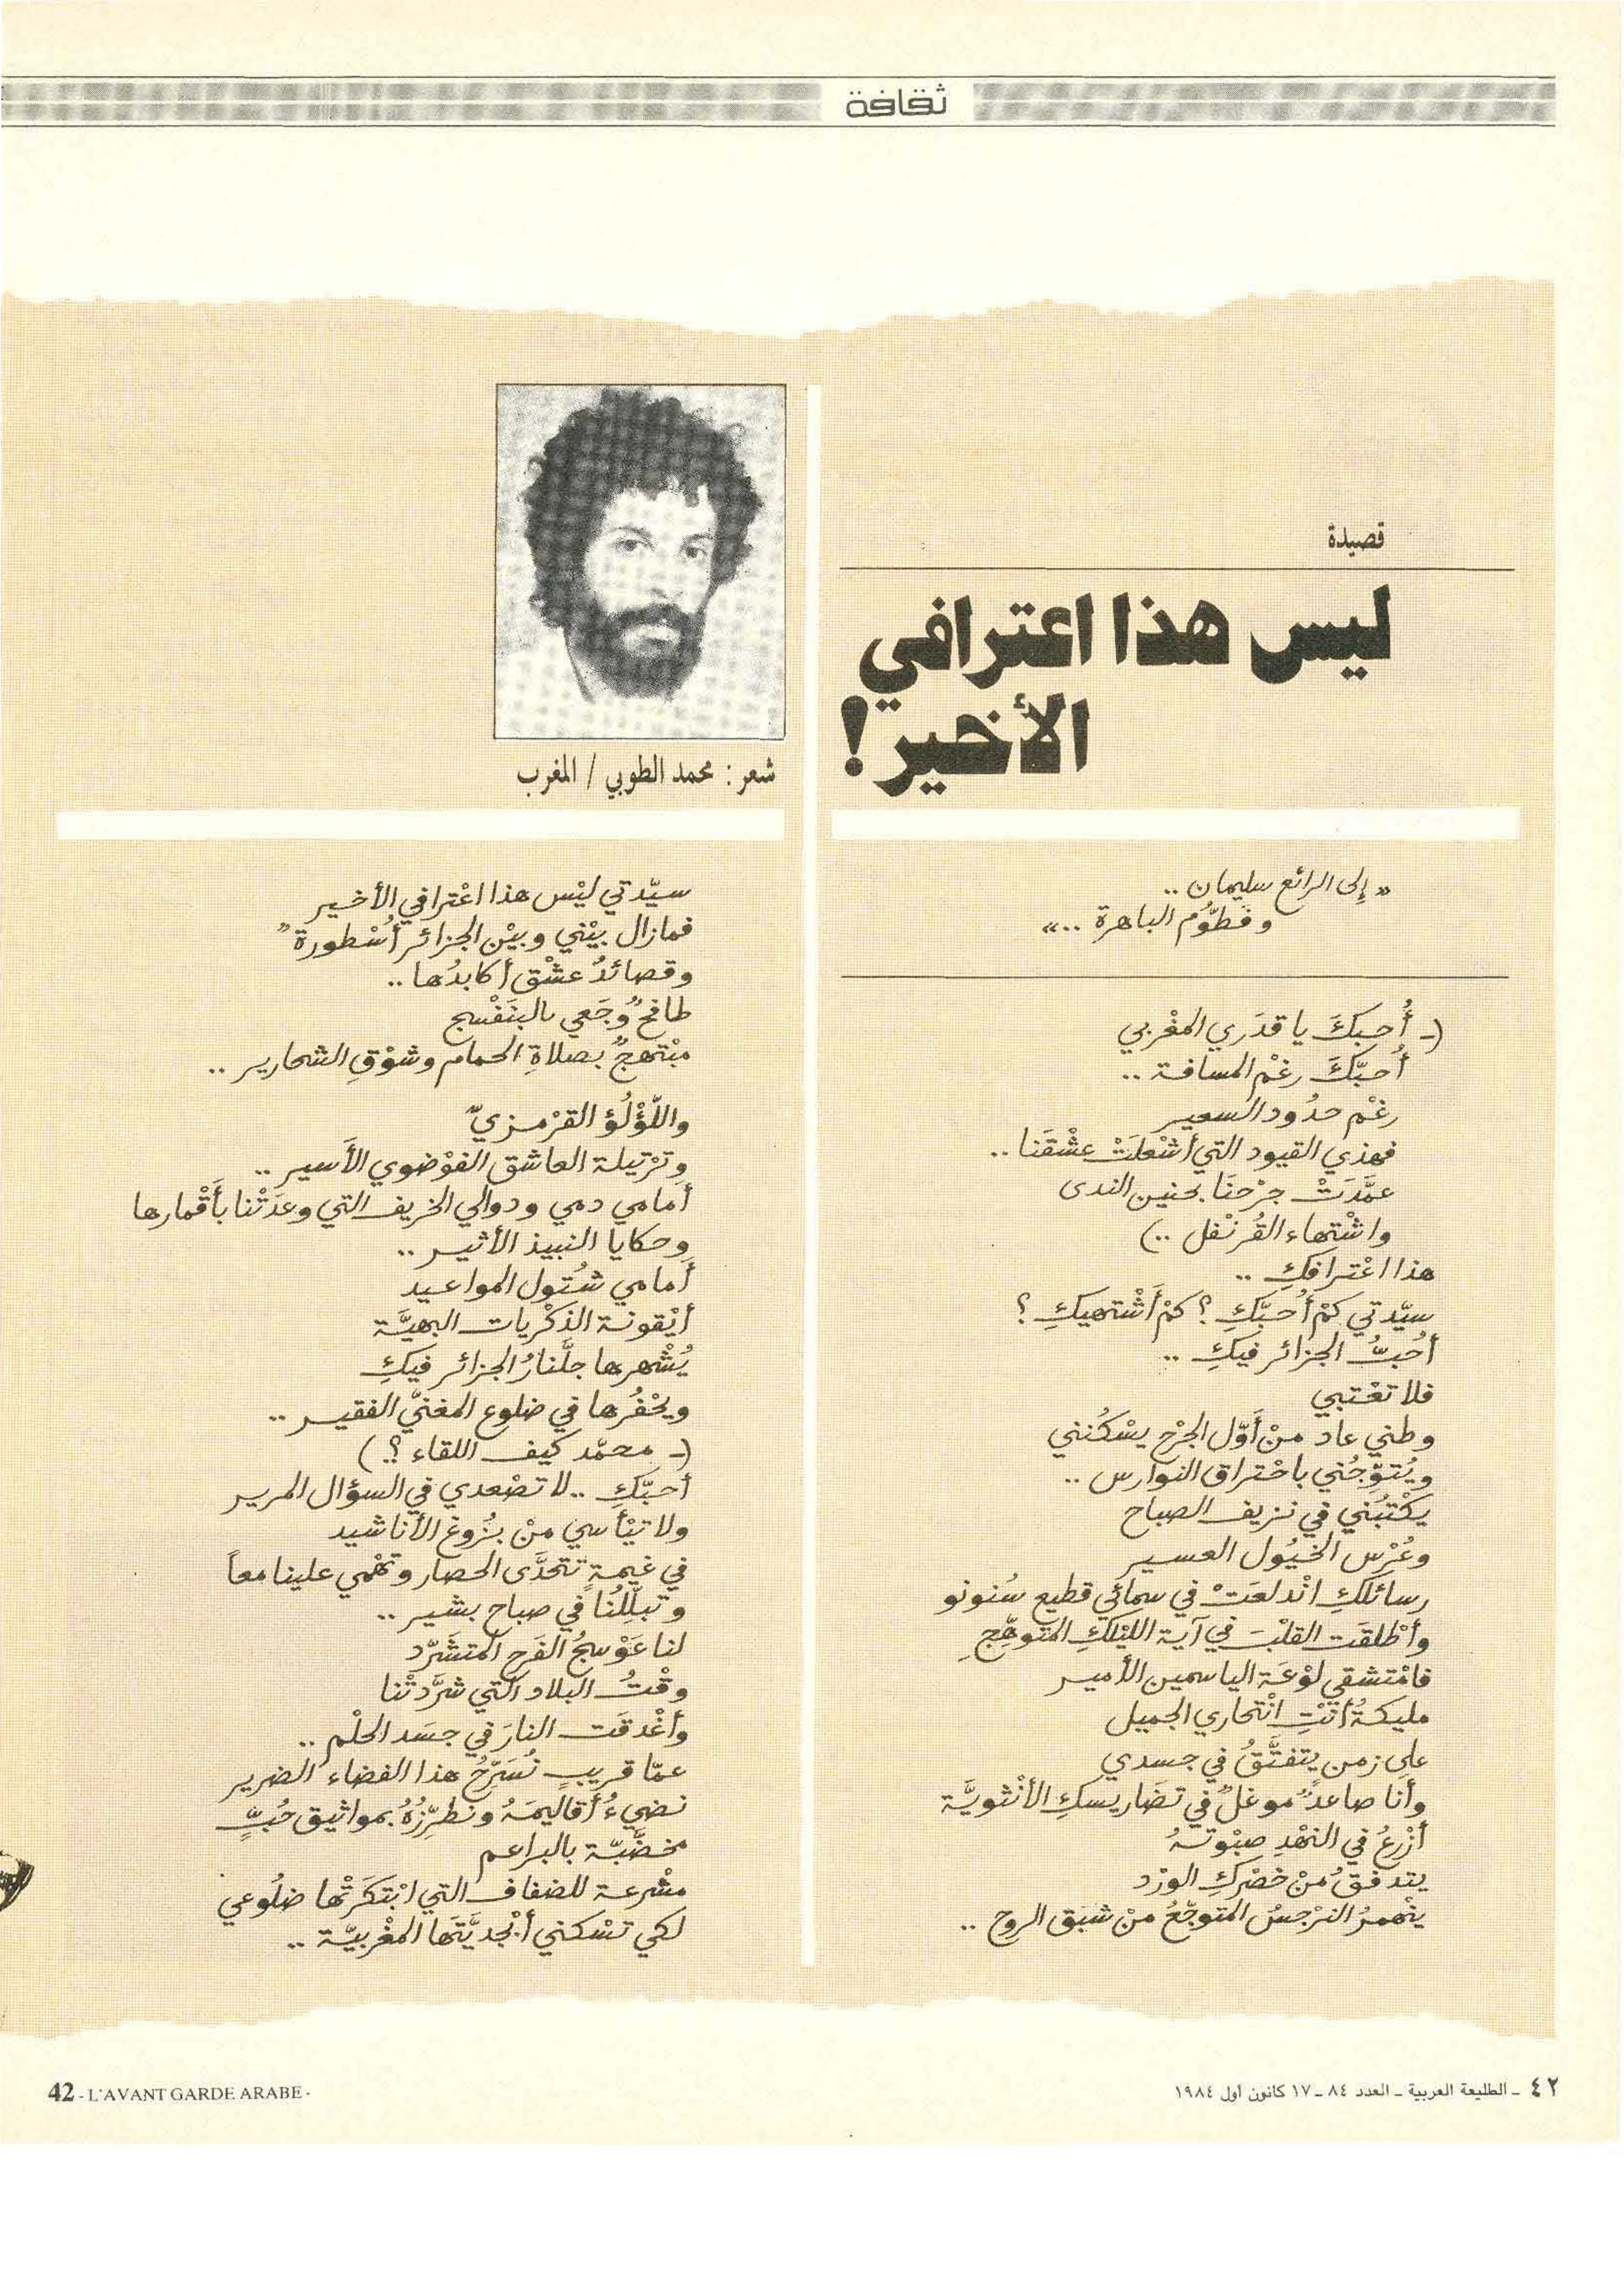 ثقافة
قصيدة
ليس هذا اعترافي
الأخير !
شعر : محمد الطوبي / المغرب
« إلى الرائع سليمان ..
وفطّوم الباهرة .. »
(ـ أُحبكَ يا قدَري المغْربي
أُحبّكَ رغْم المسافة ..
رغْم حدُود السعير
فهذي القيود التي أشْعلَتْ عشْقَنا ..
عمَّدَتْ جرْحنَا بحنين الندى
واشْتهاء القُرنْفل ..)
هذا اعْترافكِ ..
سيّدتي كمْ أُحبّكِ ؟ كمْ أَشْتهيكِ ؟
أُحبُّ الجزائر فيكِ ..
فلا تعْتبي
وطني عاد منْ أَوّل الجرْح يسْكُنني
ويُتوِّجُني باحْتراق النوارس ..
يكْتبُني في نزيف الصباح
وعُرْس الخيُول العسير
رسائلكِ انْدلعَتْ في سمائي قطيع سُنونو
وأطْلقَت القلْبَ في آية الليْلكِ المتوهّجِ
فامْتشقي لوْعَة الياسمين الأمير
مليكةُ أنتِ انْتحاري الجميل
على زمن يتفتَّقُ في جسدي
وأنا صاعدٌ موغلٌ في تضَاريسكِ الأنْثويَّة
أزْرعُ في النهْدِ صبْوتهُ
يتدفقُ منْ خصْركِ الورْد
ينْهمرُ النرْجسُ المتوجّعُ منْ شبَق الروح ..
سيّدتي ليْس هذا اعْترافي الأخير
فمازال بيْني وبيْن الجزائر أُسْطورة"
وقصائدُ عشْق أكابدُها ..
طافحٌ وجَعي بالبنَفْسج
مبْتهجٌ بصلاةِ الحمام وشوْقِ الشحارير ..
واللّؤْلُؤ القرْمزيّ
وترْتيلة العاشق الفوْضوي الأَسير ..
أمامي دمي ودوالي الخريف التي وعدَتْنا بأَقْمارها
وحكايا النبيذ الأثير ..
أمامي شتُول المواعيد
أيْقونة الذكْريات البهيَّة
يُشْهرها جلَّنارُ الجزائر فيكِ
ويحْفرُها في ضلوع المغنيّ الفقير ..
(ـ محمّد كيف اللقاء ؟.)
أحبّكِ .. لا تصْعدي في السؤال المرير
ولا تيْأسي منْ بزُوغ الأناشيد
في غيمةٍ تتحدَّى الحصار وتهْمي علينا معاً
وتبلّلُنا في صباح بشير ..
لنا عَوْسجُ الفرَح المتشَرّد
وقْتُ البلاد التي شرَّدتْنا
وأغْدقَت النارَ في جسَد الحلْم ..
عمّا قريبٍ نُسَرِّحُ هذا الفضاء الضرير
نضيءُ أقاليمَهُ ونطرّزُهُ بمواثيق حُبٍّ
مخضَّبّة بالبراعم
مشْرعة للضفاف التي ابْتكَرتْها ضلُوعي
لكي تسْكنني أبْجديَّتَها المغْربيّة ..
42 - L'AVANT GARDE ARABE -
٤٢ - الطليعة العربية - العدد ٨٤ - ١٧ كانون أول ١٩٨٤